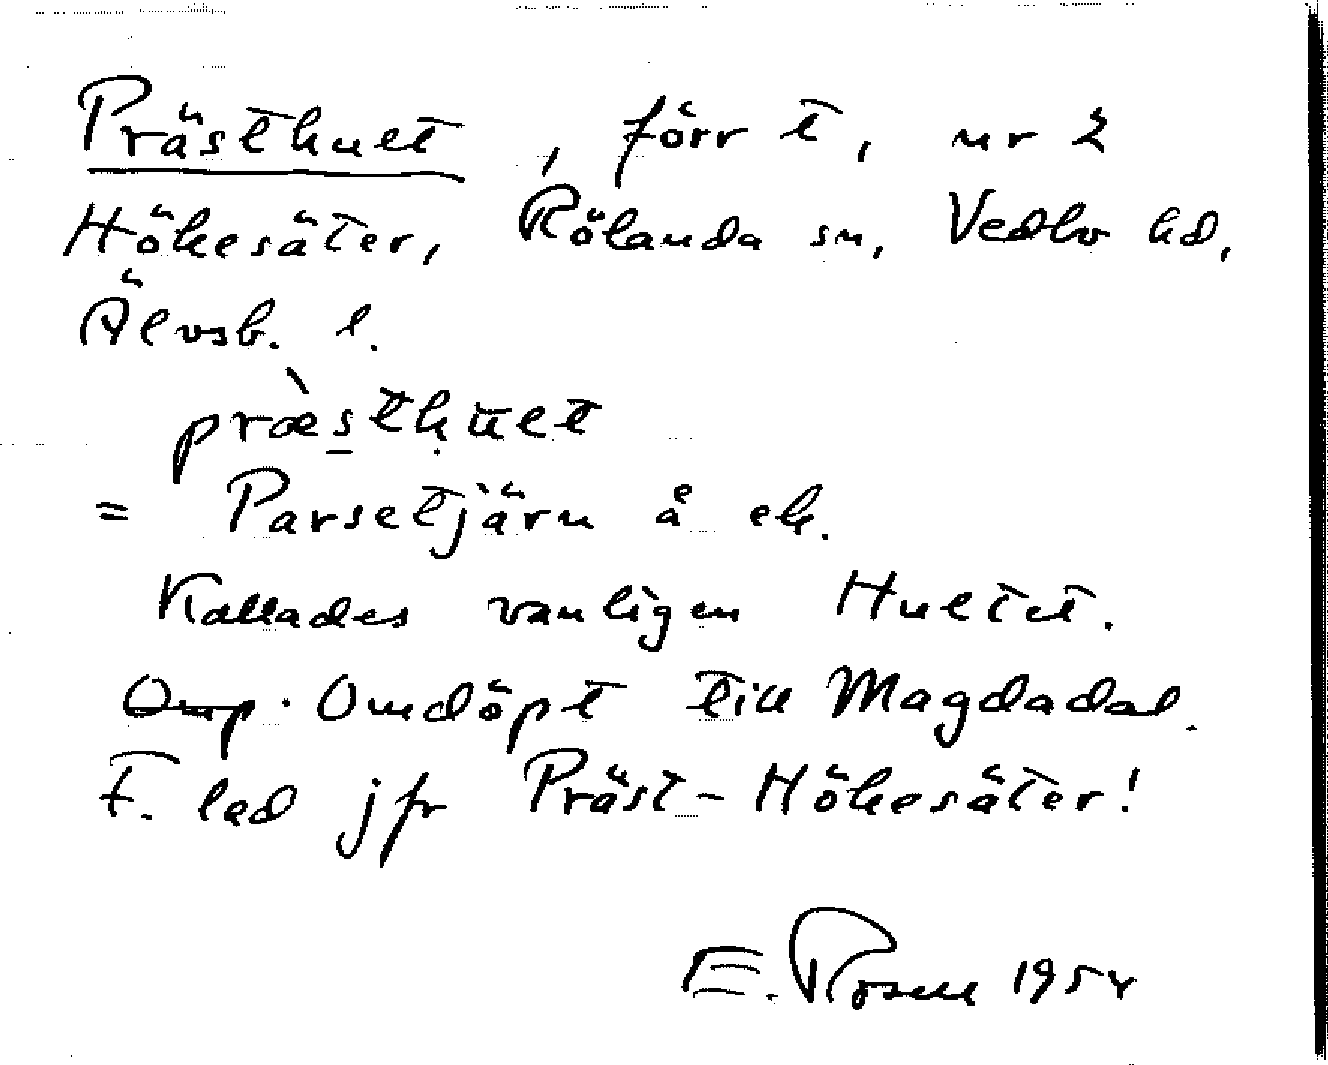 Prästhult, förr t, nr 2
Hökesäter, Rölanda sn, Vedbo hd,
Älvsb. l.
præ̀sthult
= Parsetjärn å ek.
Kallades vanligen Hultet.
Omp. Omdöpt till Magdadal.
F. led jfr Präst-Hökesäter!
E. Rosell 1954